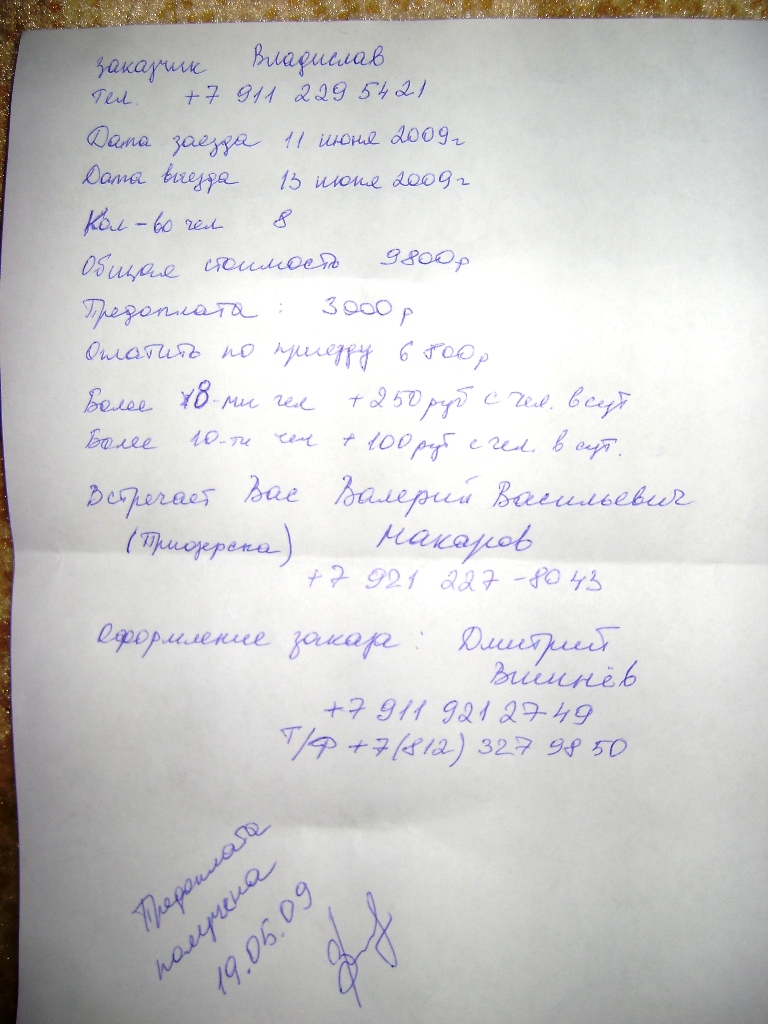 Заказчик Владислав
Тел. +7 911 229 54 21
Дата заезда 11 июня 2009г
Дата выезда 13 июня 2009г
Кол-во чел 8
Общая стоимость 9800р
Предоплата : 3000р
Оплатить по приезду 6800р
Более 8-ми чел +250руб с чел. в сут
Более 10-ти чел +100руб с чел. в сут.
Встречает Вас Валерий Васильевич
(Приозерска) Макаров
+7 921 227-80 43
Оформление заказа : Дмитрий
Вишнёв
+7 911 921 27 49
Т/Ф +7(812) 327 98 50
Предоплата
получена
19.05.09